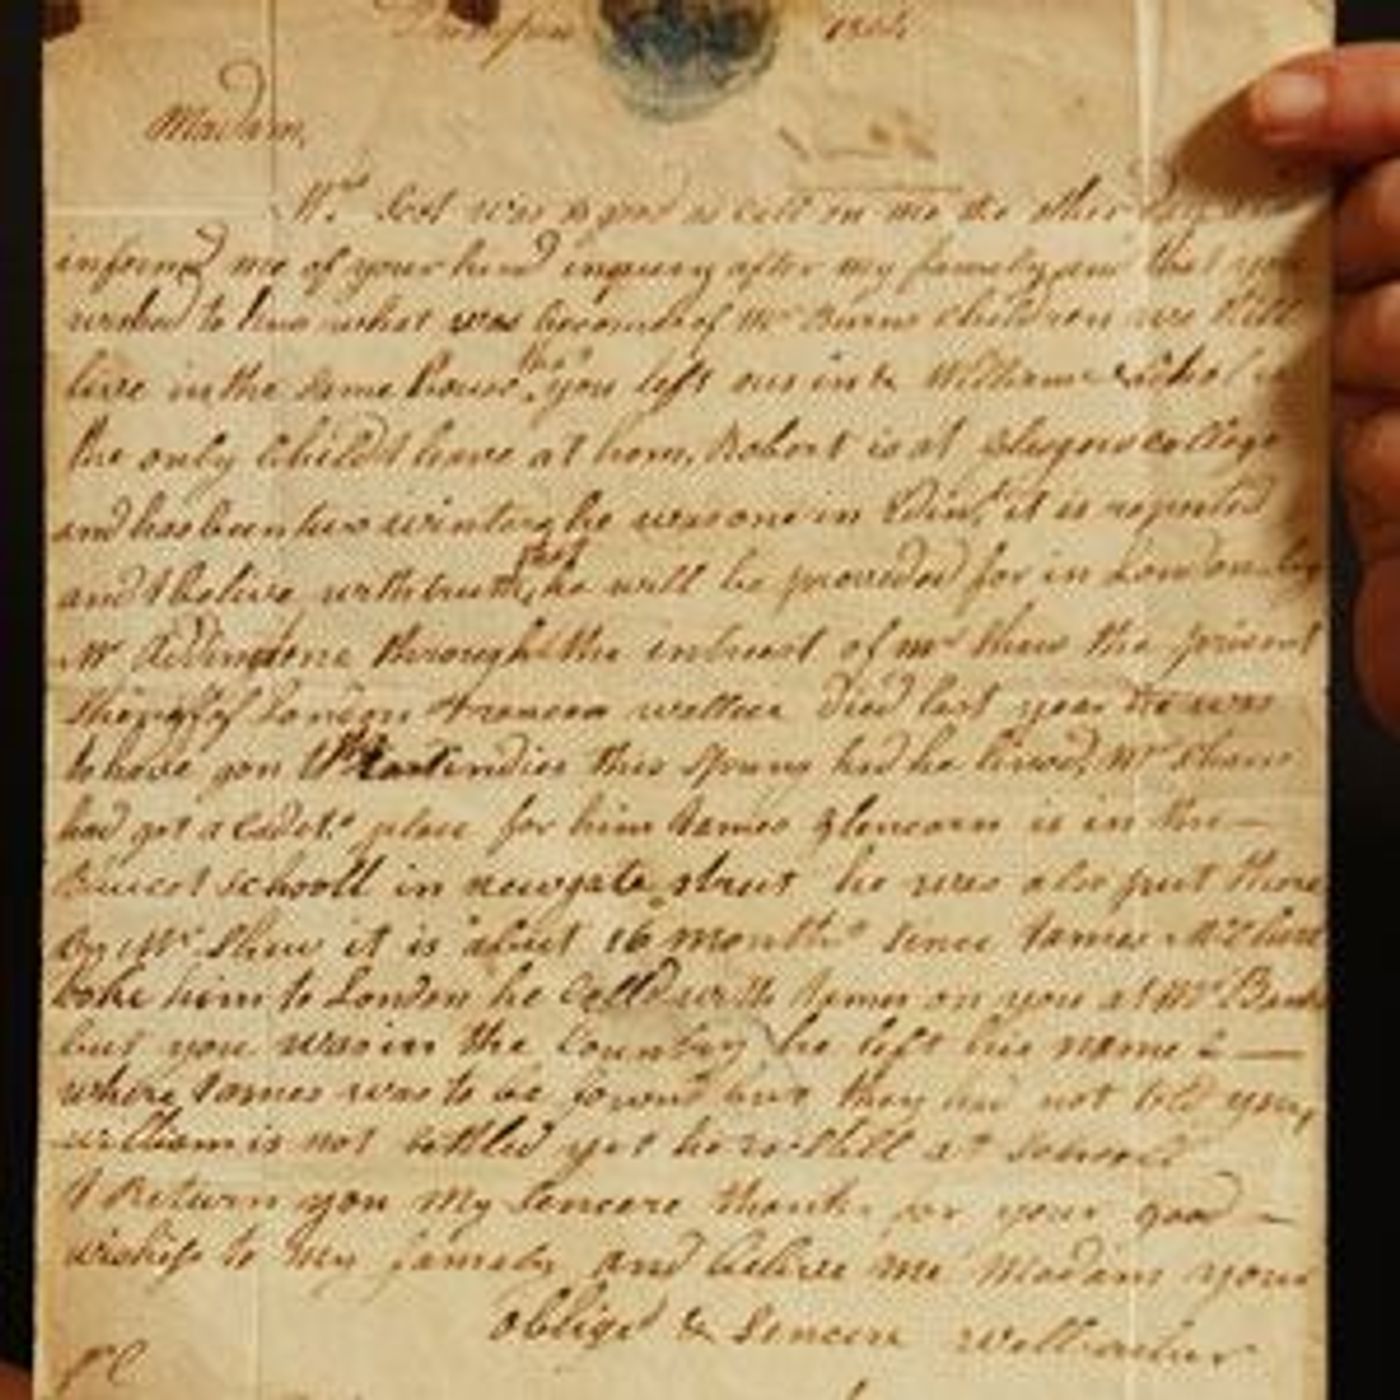 Dumfries 1804
Madam,
Mrs Scot was so good as call on me the other day and
informd me of your kind inquiery after my famely and that you
wished to know what was become of Mr Burns children we still
live in the same house that you left ous in & William Nichol is
the only child I have at hom, Robert is at Glasgow college
and has been two winters he was one in Edinr, it is reported
and I belive with truth that he will be provided for in London by
Mr Addingtone through the intrest of Mr Shaw the present
Sheriff of London Francas wallace died last year he was
to have gon to the East indies this Spring had he lived, Mr Shaw
had got a Cadets place for him James Glencairn is in the —
Bluecot schooll in newgate street he was also put there
by Mr Shaw it is about 16 months since James
toke him to London he calld with James on you at Mr
but you was in the Country he left his name & —
where James was to be found but they had not told you,
william is not settled yet he is still at school
I Return you my sencere thanks for your good —
wishes to my famely and belive me Madam your
obliged & Sencere wellwisher